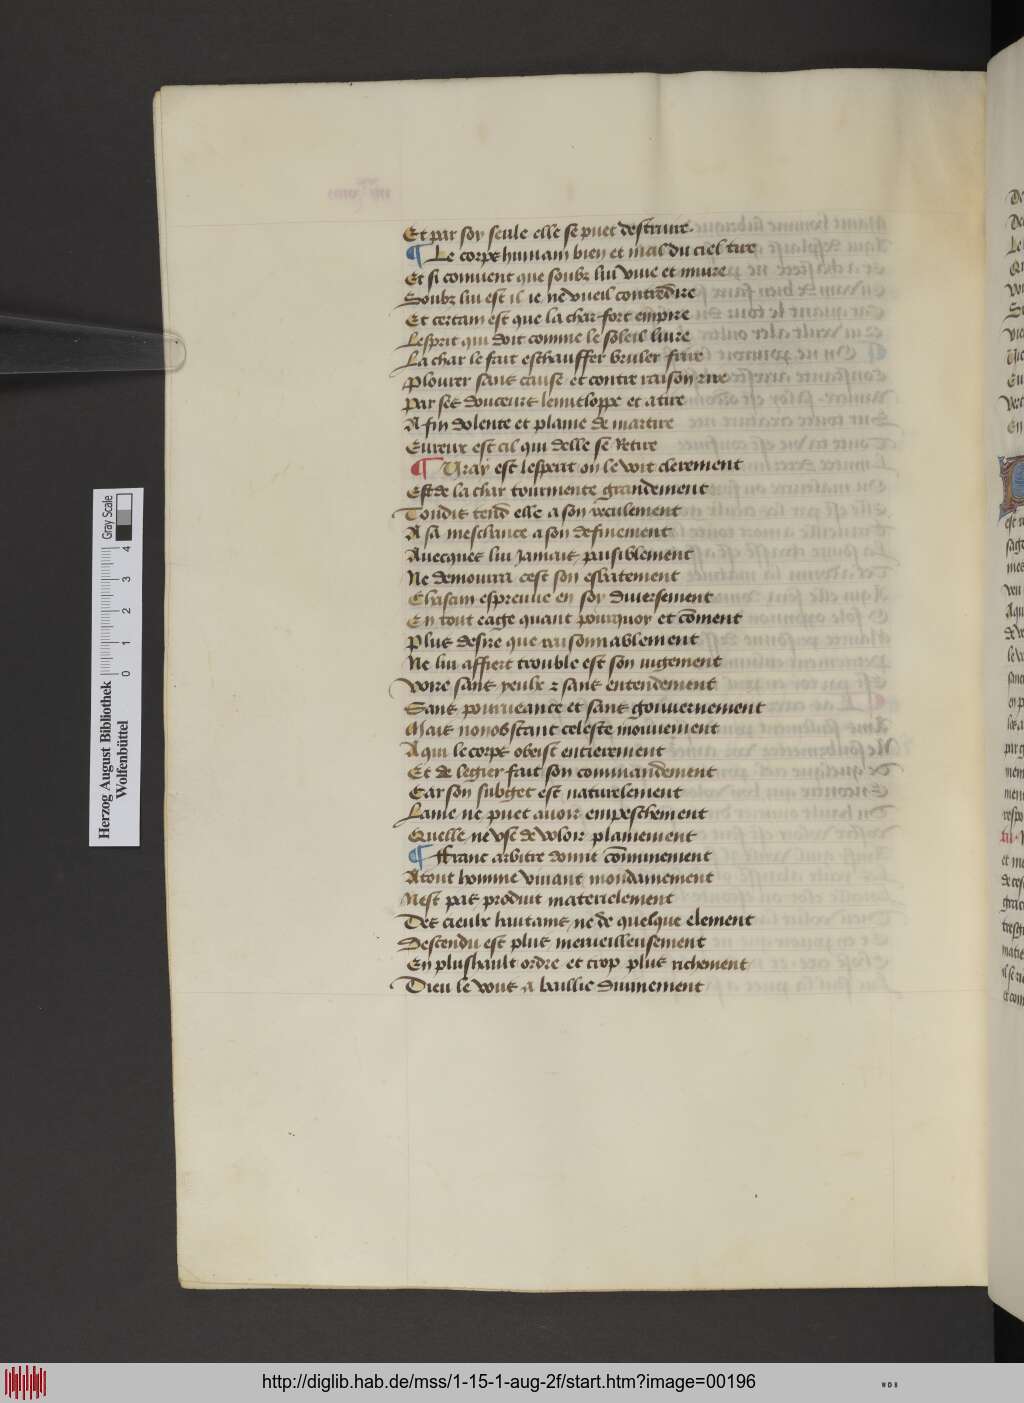 Et par soy seule elle se puet destruire
¶ Le corps humain bien et mal du ciel tire
Et si convient que soubz lui vive et muire
Soubz lui est il ie ne vueil contredire
Et certain est que la char fort empire
Lesprit qui doit comme le soleil luire
La char le fait eschauffer bruler frire
Plourer sans cause et contre raison rire
Par ses douceurs lenveloppe et atire
A fin dolente et plaine de martire
Eureux est cil qui delle se Retire
¶ Vray est lesperit on le voit clerement
Est de la char tourmente grandement
Tondis tend elle a son reculement
A sa meschance a son definement
Avecques lui Jamais paisiblement
Ne demourra cest son esbatement
Chascun espreuve en soy diversement
En tout eage quant pourquoy et coment
Plus desire que raisonnablement
Ne lui affiert trouble est son iugement
Voire sans yeulx z sans entendement
Sans pourveance et sans gouvernement
Mais nonobstant celeste mouvement
A qui le corps obeist entierement
Et de legier fait son commandement
Car son subget est naturelement
Lame ne puet avoir empeschement
Quelle ne use de voloir plainement
¶ ffranc arbitre donne communement
A tout homme vivant mondainement
Nest pas produit materielement
Des cieulx haultains ne de quelque element
Descendu est plus merveilleusement
En plushault ordre et trop plus richement
Dieu le vous a baillie divinement
Herzog August Bibliothek
Wolfenbüttel
0 1 2 3 4
Gray Scale
http://diglib.hab.de/mss/1-15-1-aug-2f/start.htm?image=00196
WDB